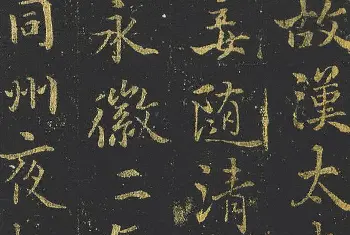 故漢太
随清
永徽二
同州夜